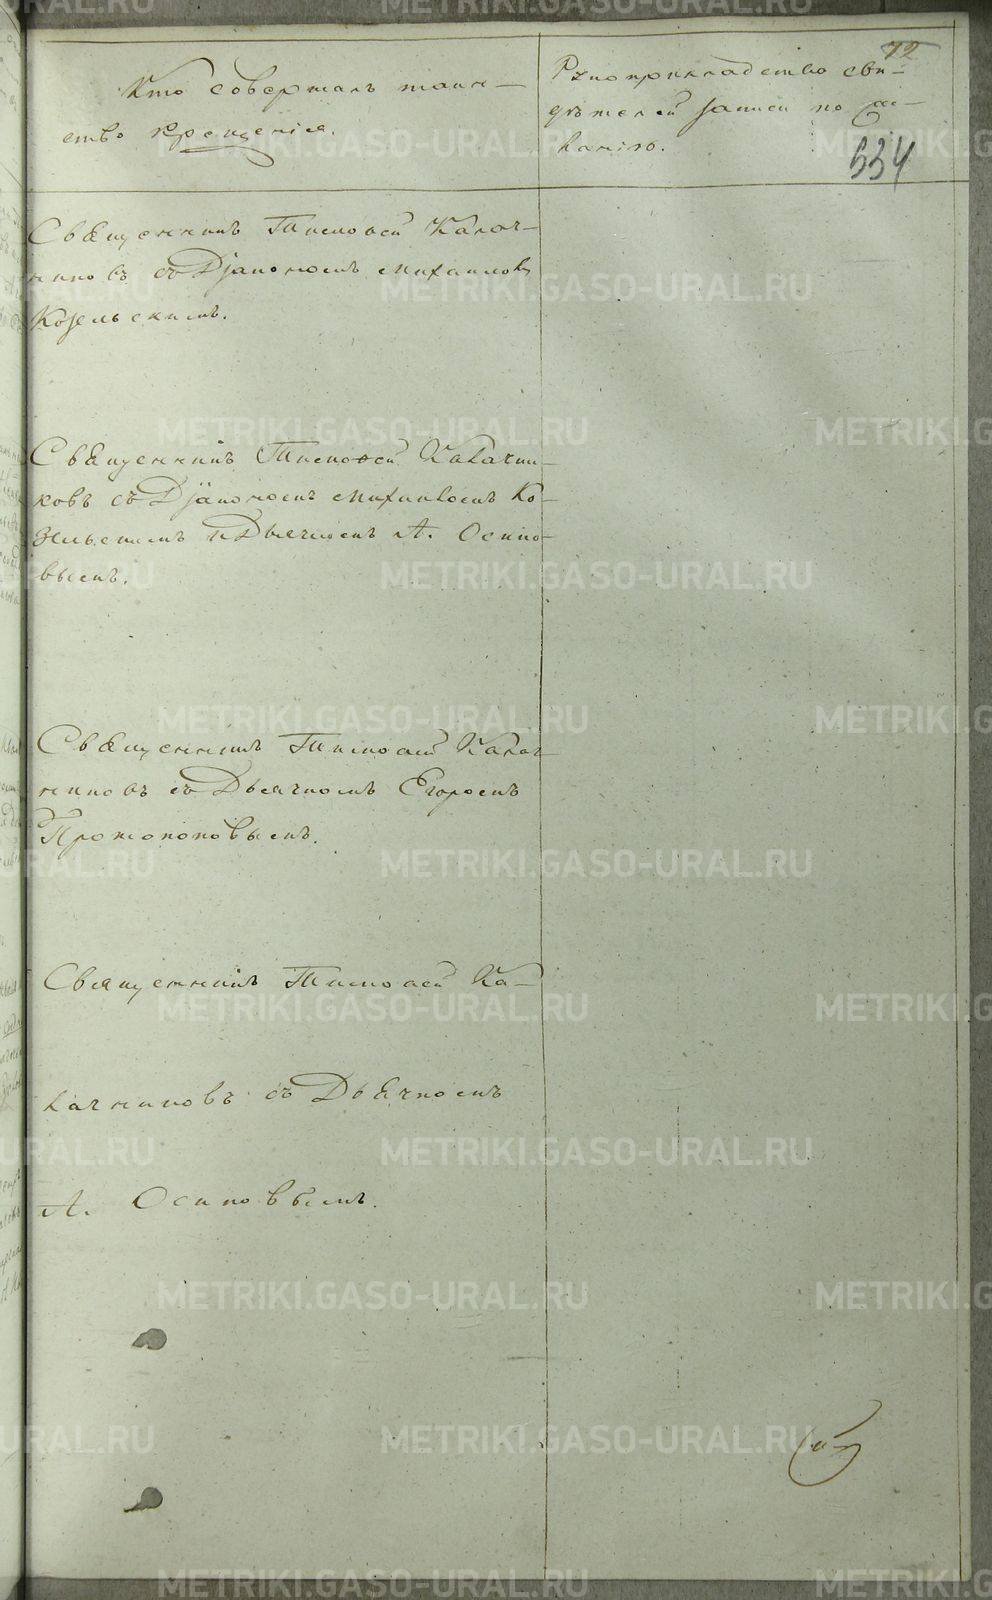 72
534
Кто совершалъ таин-
ство крещенія.
Рукоприкладство сви-
дѣтелей записи по же-
ланію.
Священникъ Тимоѳей Калач-
никовъ съ Діакономъ Михаиломъ
Козельскимъ.
Священникъ Тимоѳей Калачни-
ковъ съ Діакономъ Михаиломъ Ко-
зельскимъ и Дьячкомъ А. Осипо-
вымъ.
Священникъ Тимоѳей Калач-
никовъ съ Дьячкомъ Егоромъ
Протопоповымъ.
Священникъ Тимоѳей Ка-
лачниковъ съ Дьячкомъ
А. Осиповымъ.
METRIKI.GASO-URAL.RU